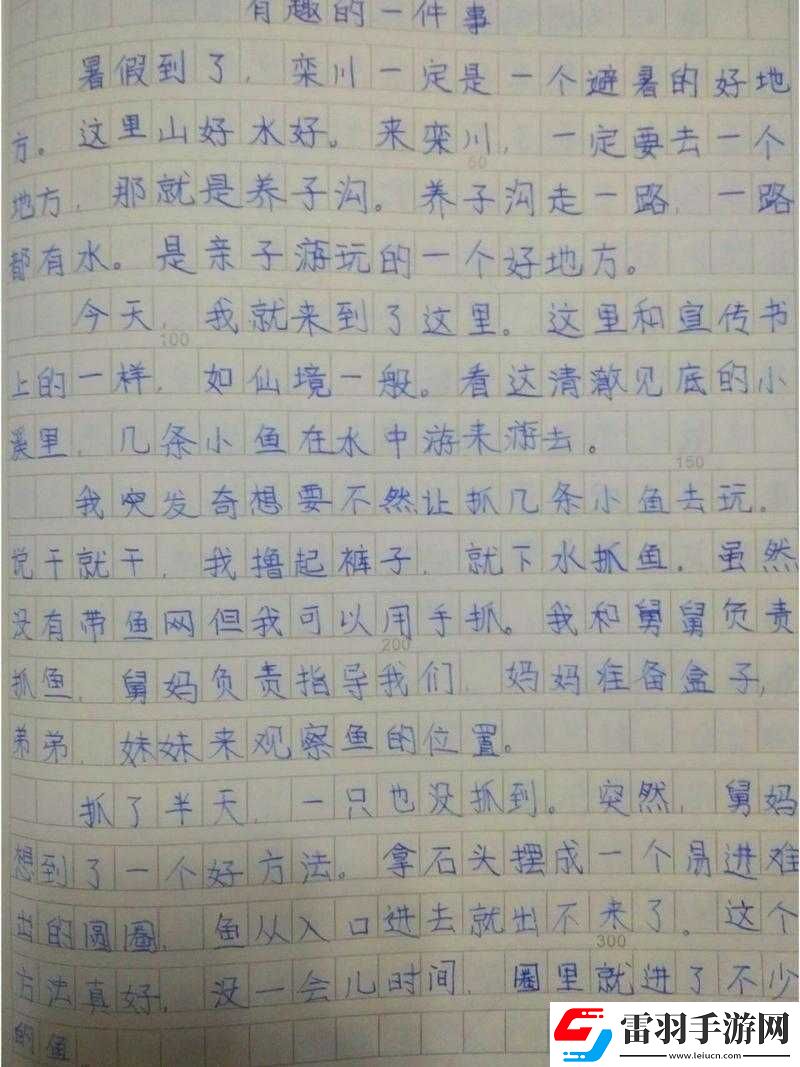 有趣的一件事
暑假到了，栾川一定是一个避暑的好地
方。这里山好水好。来栾川，一定要去一个
地方，那就是养子沟。养子沟走一路，一路
都有水。是亲子游玩的一个好地方。
今天，我就来到了这里。这里和宣传书
上的一样，如仙境一般。看这清澈见底的小
溪里，几条小鱼在水中游来游去。
我突发奇想要不然让抓几条小鱼去玩。
说干就干，我撸起裤子，就下水抓鱼。虽然
没有带鱼网但我可以用手抓。我和舅舅负责
抓鱼，舅妈负责指导我们，妈妈准备盒子，
弟弟，妹妹来观察鱼的位置。
抓了半天，一只也没抓到。突然，舅妈
想到了一个好方法。拿石头摆成一个易进难
出的圆圈，鱼从入口进去就出不来了。这个
方法真好，没一会儿时间，圈里就进了不少
的鱼
50
100
150
200
300
雷羽手游网
www.leiucn.com